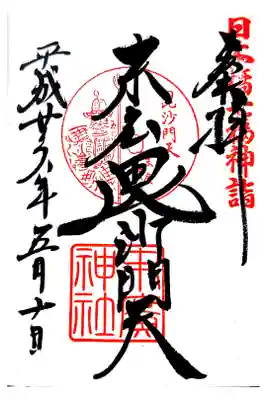 日本橋七福神詣
奉拝
末広毘沙門天
毘沙門天
末廣神社
平成廿六年五月十日